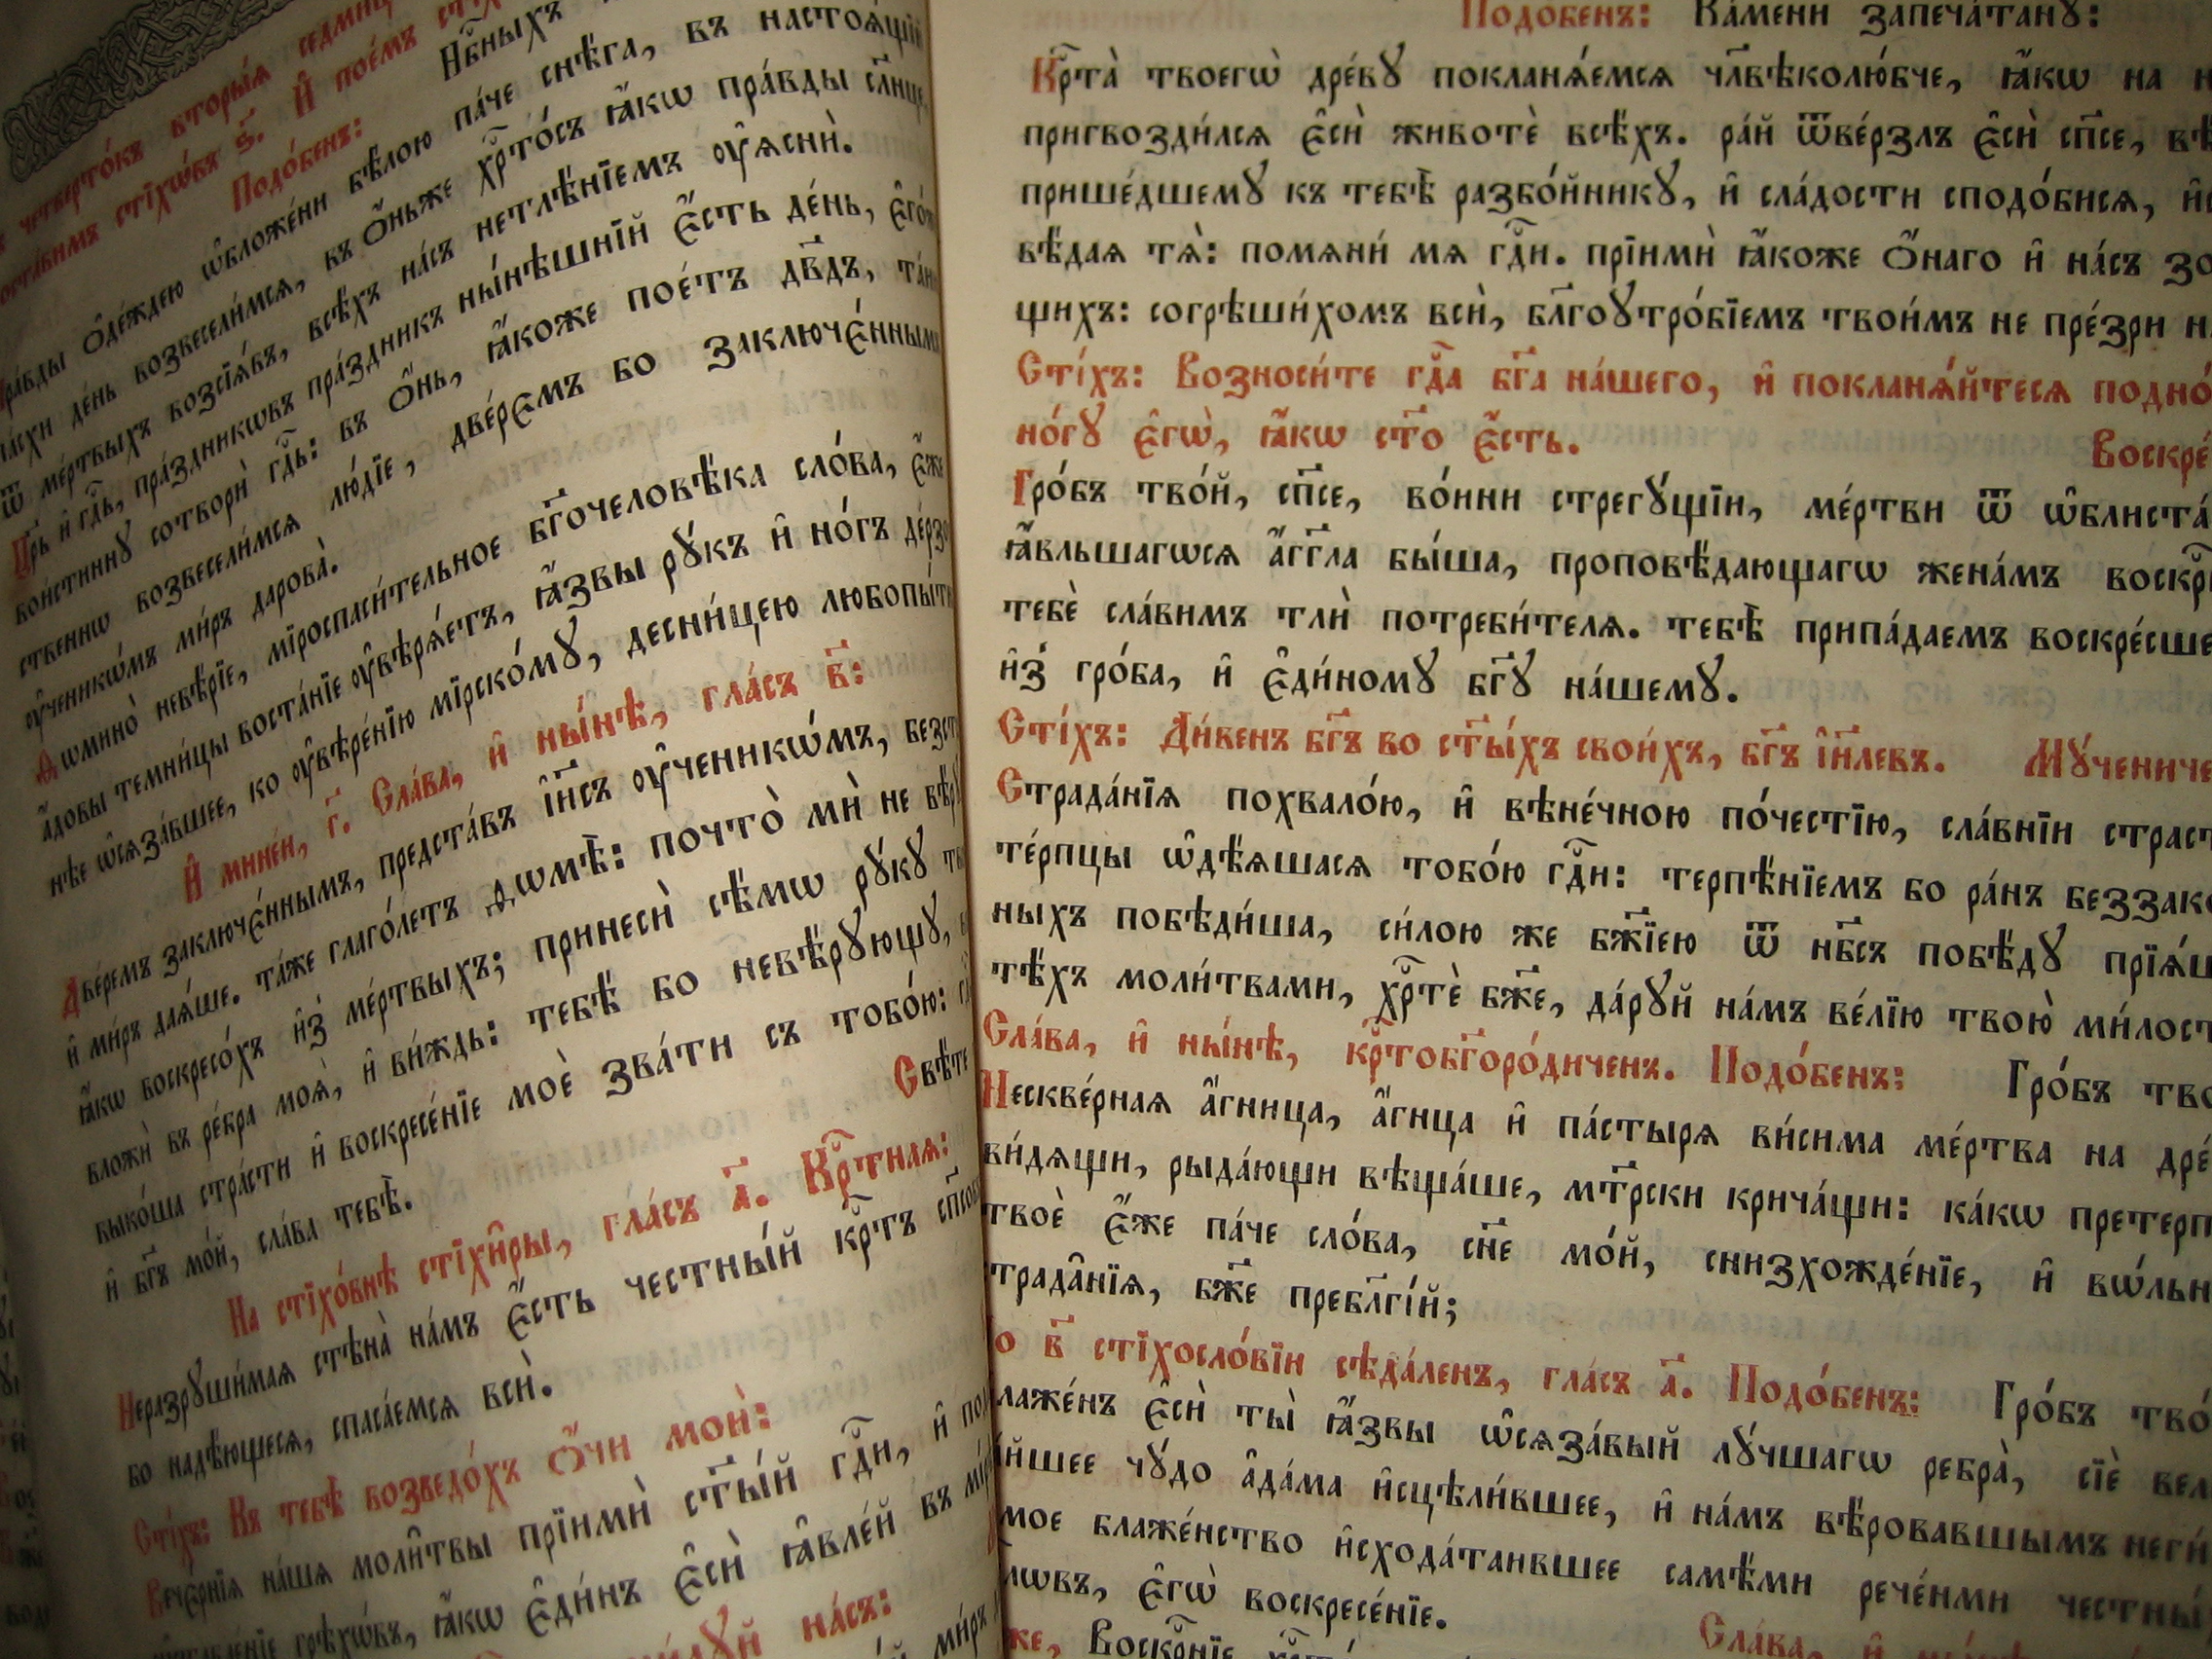 четверто́къ вторы́ѧ седми́ц
оста́вимъ стїхѡ́въ ѕ҃. И҆ пое́мъ стї
Подо́бенъ: Нб҃ныхъ
пра́вды ѻ҆де́ждею ѡ҆бложе́ни бѣ́лою па́че снѣ́га, въ настоѧ́щїй
па́схи де́нь возвесели́мсѧ, въ ѻ҆́ньже хрⷭ҇то́съ ꙗ҆́кѡ пра́вды сл҃нце,
ѿ ме́ртвыхъ возсїѧ́въ, всѣ́хъ на́съ нетлѣ́нїемъ ᲂу҆ѧснѝ.
Цр҃ь и҆ гдⷭ҇ь, пра́здникѡвъ пра́здникъ ны́нѣшнїй є҆́сть де́нь, є҆го́же
вои́стинну сотворѝ гдⷭ҇ь: въ ѻ҆́нь, ꙗ҆́коже пое́тъ дв҃дъ, та́ин
ственнѡ возвесели́мсѧ лю́дїе, две́рємъ бо заключє́ннымъ
ᲂу҆ченикѡ́мъ ми́ръ дарова̀.
Ѳѡмино̀ невѣ́рїе, мїроспаси́тельное бг҃очеловѣ́ка сло́ва, є҆́же
а҆́довы темни́цы воста́нїе ᲂу҆вѣрѧ́етъ, ꙗ҆́звы рꙋ́къ и҆ но́гъ де́рзо
нѣе ѡ҆сѧза́вшее, ко ᲂу҆вѣре́нїю мїрско́мꙋ, десни́цею любопы́тн
И҆ мине́и, г҃. Сла́ва, и҆ ны́нѣ, гла́съ в҃:
Две́ремъ заключє́ннымъ, предста́въ і҆и҃съ ᲂу҆ченикѡ́мъ, безст
и҆ ми́ръ даѧ́ше. та́же глаго́летъ ѳѡмѣ̀: почто̀ мѝ не вѣ́рꙋ
ꙗ҆́кѡ воскресо́хъ и҆з̾ ме́ртвыхъ; принесѝ сѣ́мѡ рꙋ́кꙋ тв
вложѝ въ ре́бра моѧ̑, и҆ ви́ждь: тебѣ́ бо невѣ́рꙋющꙋ,
выко́ша стра́сти и҆ воскресе́нїе моѐ зва́ти съ тобо́ю: гд
и҆ бг҃ъ мо́й, сла́ва тебѣ̀. Свѣ́те
На стїхо́внѣ стїхи̑ры, гла́съ а҃. Крⷭ҇тнаѧ:
Неразрꙋши́маѧ стѣна̀ на́мъ є҆́сть честны́й крⷭ҇тъ сп҃совъ
бо надѣ́ющесѧ, спаса́емсѧ всѝ.
Сті́хъ: Къ тебѣ̀ возведо́хъ ѻ҆́чи моѝ:
Вечє́рнїѧ на́шѧ моли̑твы прїимѝ ст҃ы́й гдⷭ҇и, и҆ пода
грѣхѡ́въ, ꙗ҆́кѡ є҆ди́нъ є҆сѝ ꙗ҆вле́й въ мі́р
на́съ:
ми́ръ
Подо́бенъ: Ка́мени запеча́танꙋ:
Крⷭ҇та̀ твоегѡ̀ дре́вꙋ покланѧ́емсѧ чл҃вѣколю́бче, ꙗ҆́кѡ на н
пригвозди́лсѧ є҆сѝ животѐ всѣ́хъ. ра́й ѿве́рзлъ є҆сѝ сп҃се, вѣ́
прише́дшемꙋ къ тебѣ̀ разбо́йникꙋ, и҆ сла́дости сподо́бисѧ, и҆с
вѣ́даѧ тѧ̀: помѧни́ мѧ гдⷭ҇и. прїимѝ ꙗ҆́коже ѻ҆́наго и҆ на́съ зо
щихъ: согрѣши́хомъ всѝ, бл҃гоꙋтро́бїемъ твои́мъ не пре́зри н
Сті́хъ: Возноси́те гдⷭ҇а бг҃а на́шего, и҆ покланѧ́йтесѧ подно́
но́гꙋ є҆гѡ̀, ꙗ҆́кѡ ст҃о є҆́сть. Воскре́
Гро́бъ тво́й, сп҃се, во́ини стрегꙋ́щїи, ме́ртви ѿ ѡ҆блиста́
ꙗ҆́вльшагѡсѧ а҆́гг҃ла бы́ша, проповѣ́дающагѡ жена́мъ воскрⷭ҇
тебѐ сла́вимъ тлѝ потреби́телѧ. тебѣ̀ припа́даемъ воскре́сше
и҆з̾ гро́ба, и҆ є҆ди́номꙋ бг҃ꙋ на́шемꙋ.
Сті́хъ: Ди́венъ бг҃ъ во ст҃ы́хъ свои́хъ, бг҃ъ і҆и҃левъ. Мꙋ́чениче
Страда́нїѧ похвало́ю, и҆ вѣне́чною по́честїю, сла́внїи страст
те́рпцы ѡ҆дѣ́ѧшасѧ тобо́ю гдⷭ҇и: терпѣ́нїемъ бо ра́нъ беззако
ныхъ побѣди́ша, си́лою же бж҃їею ѿ нб҃съ побѣ́дꙋ прїѧ́ш
тѣ́хъ моли́твами, хрⷭ҇тѐ бж҃е, да́рꙋй на́мъ ве́лїю твою̀ ми́лост
Сла́ва, и҆ ны́нѣ, крⷭ҇тобг҃оро́диченъ. Подо́бенъ: Гро́бъ тво
Нескве́рнаѧ а҆́гница, а҆́гнца и҆ па́стырѧ ви́сима ме́ртва на дре́
ви́дѧщи, рыда́ющи вѣща́ше, мт҃рски крича́щи: ка́кѡ претерп
твоѐ є҆́же па́че сло́ва, сн҃е мо́й, снизхожде́нїе, и҆ вѡ́льн
трада̑нїѧ, бж҃е пребл҃гі́й;
о в҃ стїхосло́вїи сѣда́ленъ, гла́съ а҃. Подо́бенъ: Гро́бъ тво́
лаже́нъ є҆сѝ ты̀ ꙗ҆́звы ѡ҆сѧза́вый лꙋ́чшагѡ ребра̀, сїѐ вел
и́йшее чꙋ́до а҆да́ма и҆сцѣли́вшее, и҆ на́мъ вѣ́ровавшымъ неги́
мое блаже́нство и҆схода́таившее самѣ́ми рече́нми честны́
лѡвъ, є҆гѡ̀ воскресе́нїе. Сла́ва, и҆ ны́нѣ
же, Воскрⷭ҇нїе хрⷭ҇то́